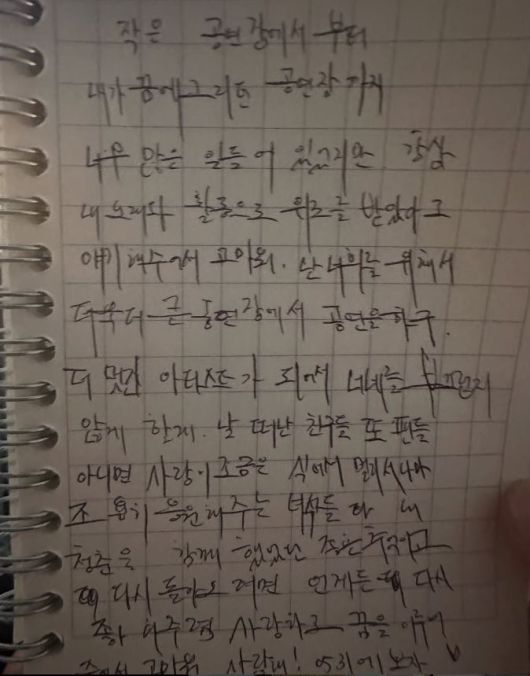 작은 공연장에서 부터
내가 꿈에 그리던 공연장 까지
너무 많은 일들이 있었지만 항상
내 노래와 활동으로 위로를 받았다고
얘기해주어서 고마워. 난 너희를 위해서
더욱더 큰 공연장에서 공연을 하구.
더 멋진 아티스트가 되어서 너네를
않게 할게. 날 떠난 친구들 또 팬들
아니면 사랑이 조금은 식어서 멀리서나마
조용히 응원해주는 녀석들 다 내
청춘을 함께 했었던 좋은 추억이고
다시 돌아오려면 언제든 다시
좋아해주렴 사랑하고 꿈을 이루어
주어서 고마워 사랑해!